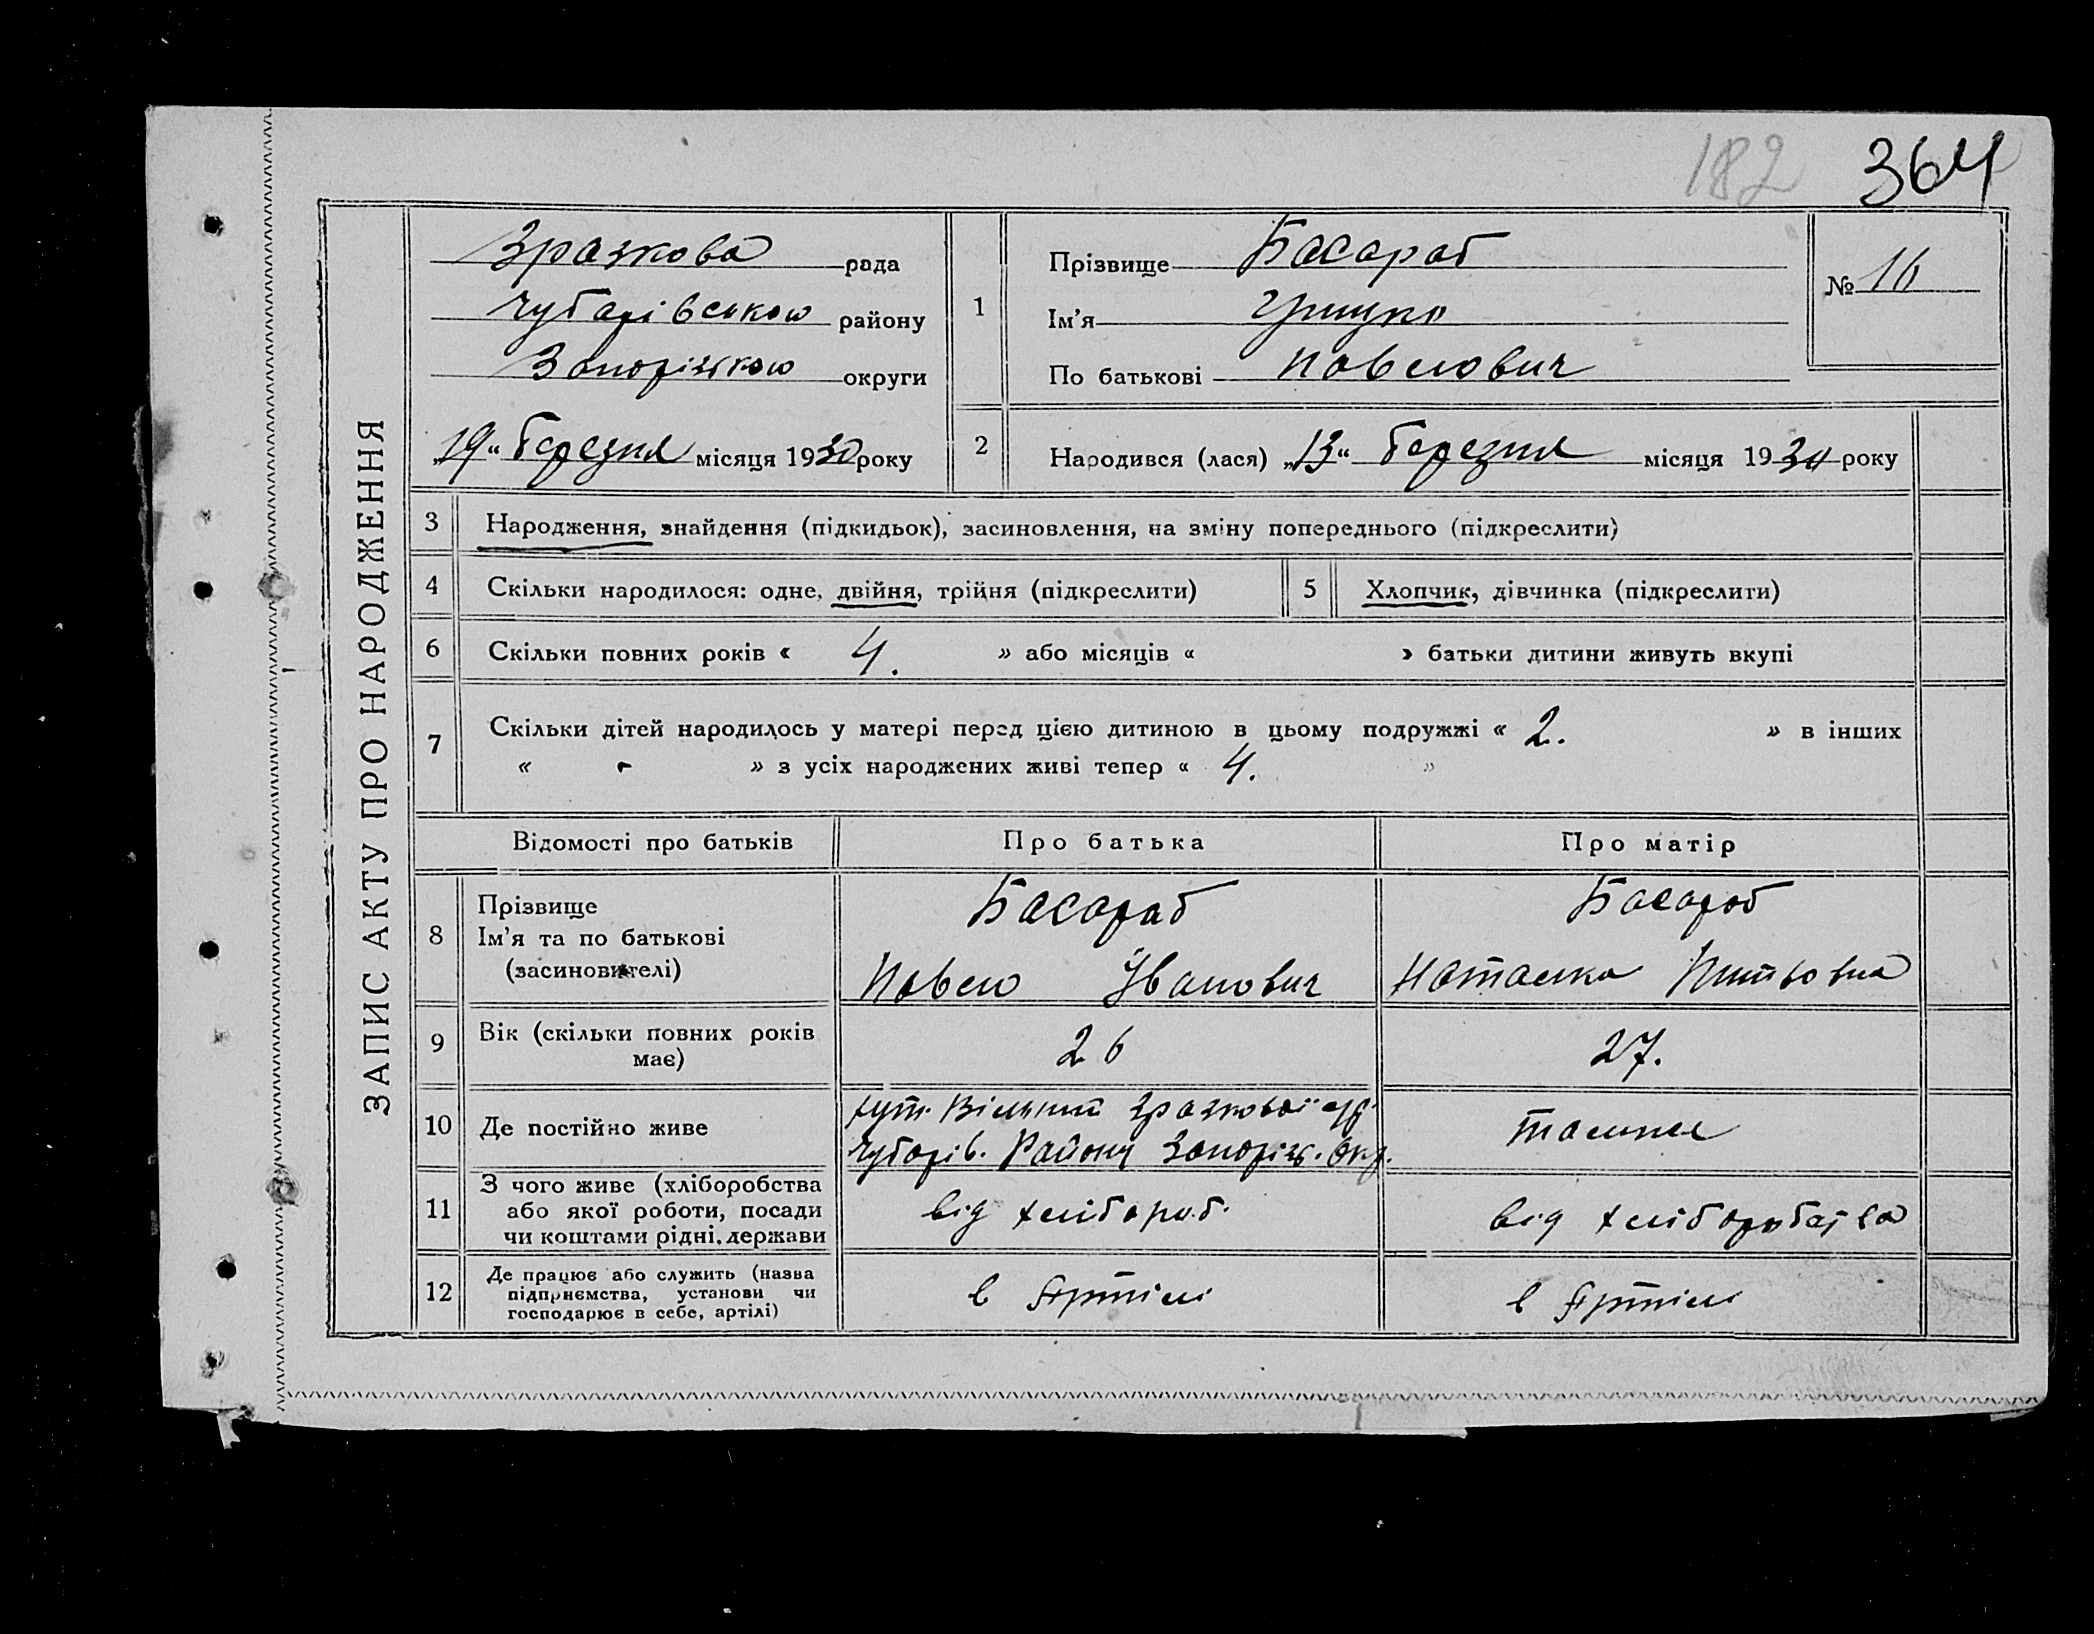 182 364
ЗАПИС АКТУ ПРО НАРОДЖЕННЯ
Зразкова рада
Чубарівського району
Запорізького округи
„19“ березня місяця 1930 року
1
Прізвище Басараб
Ім’я Грицко
По батькові Павлович
№ 16
2 Народився (лася) „13“ березня місяця 1930 року
3 Народження, знайдення (підкидьок), засиновлення, на зміну попереднього (підкреслити)
4 Скільки народилося: одне, двійня, трійня (підкреслити) 5 Хлопчик, дівчинка (підкреслити)
6 Скільки повних років « 4. » або місяців « » батьки дитини живуть вкупі
7 Скільки дітей народилось у матері перед цією дитиною в цьому подружжі « 2. » в інших
« - » з усіх народжених живі тепер « 4. »
Відомості про батьків Про батька Про матір
8 Прізвище
Ім’я та по батькові
(засиновителі)
Басараб
Павло Іванович
Басараб
Наталка
9 Вік (скільки повних років
має)
26 27.
10 Де постійно живе
хут. Вільний Зразкової с/р.
Чубарів. Району Запоріз. Окр.
11 З чого живе (хліборобства
або якої роботи, посади
чи коштами рідні, держави
від хлібороб. від хліборобства
12 Де працює або служить (назва
підприємства, установи чи
господарює в себе, артілі)
в Артілі в Артілі